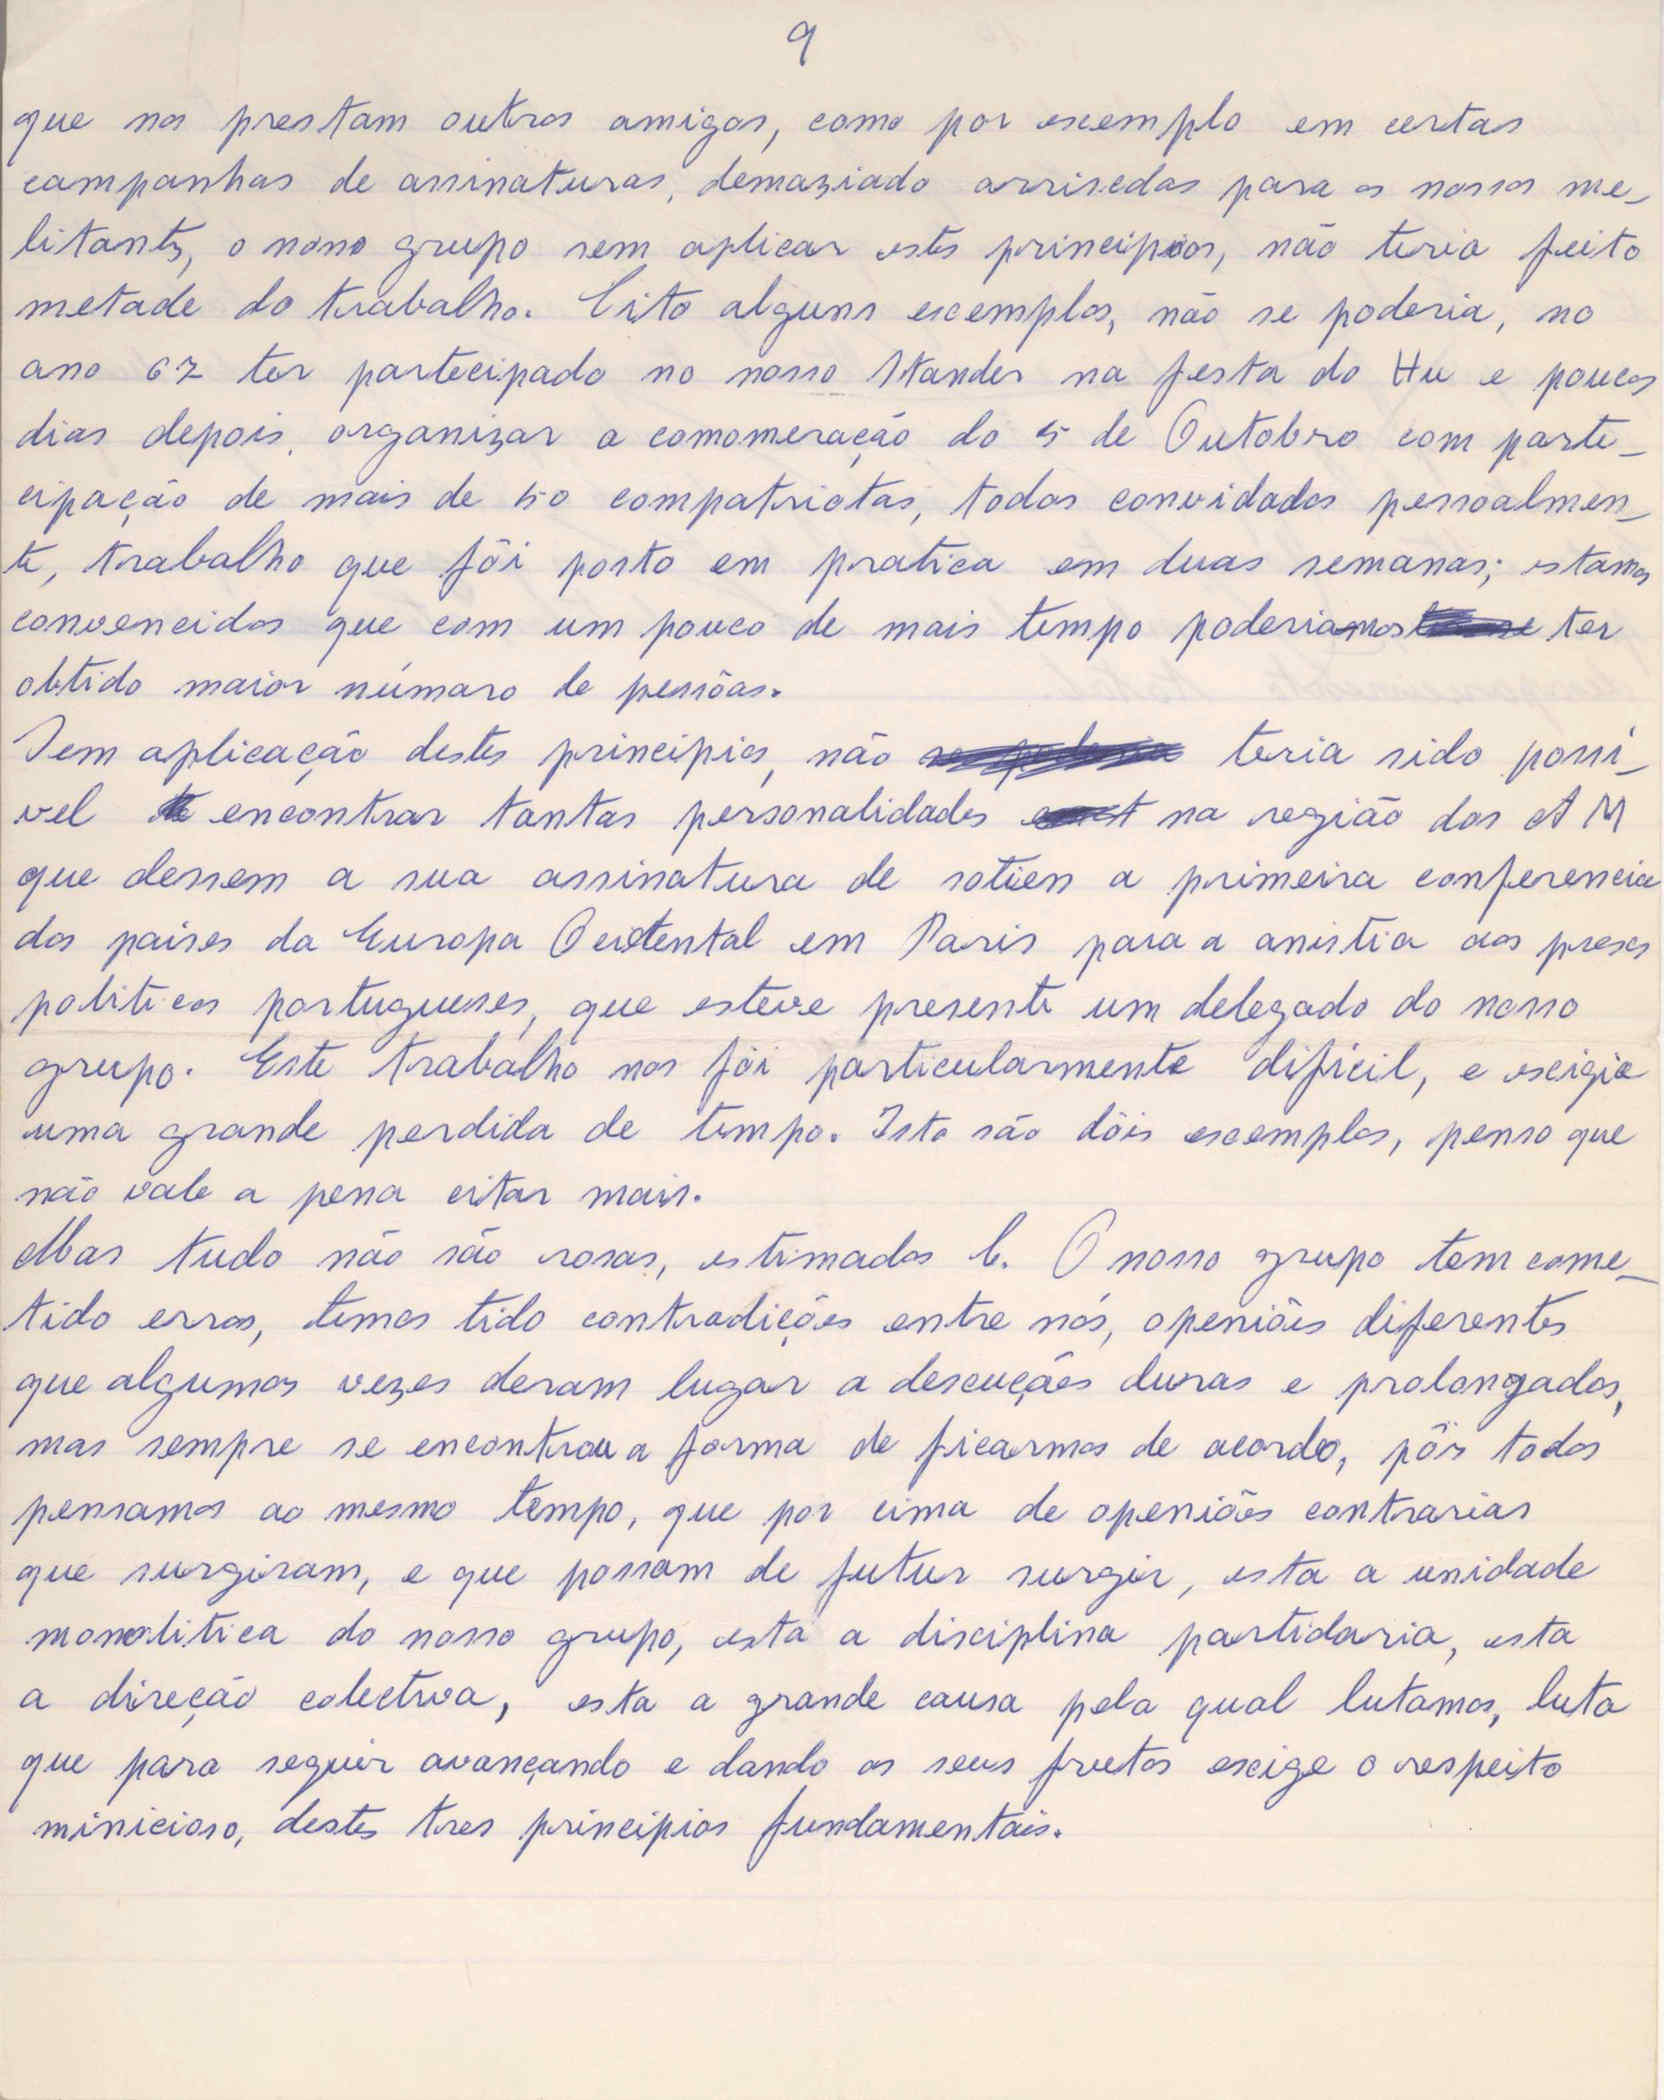 9
que nos prestam outros amigos, como por escemplo em certas
campanhas de assinaturas, demaziado arriscadas para os nossos me-
litantes, o nosso grupo sem aplicar estes principios, não teria feito
metade do trabalho. Cito alguns escemplos, não se poderia, no
ano 67 ter partecipado no nosso Stander na festa do Hu e poucos
dias depois, organizar a comomeração do 5 de Outobro com parte-
cipação de mais de 50 compatriotas, todos convidados pessoalmen-
te, trabalho que fôi posto em pratica em duas semanas; estamos
convencidos que com um pouco de mais tempo poderiamos ter
obtido maior númaro de pessôas.
Sem aplicação destes principios, não teria sido possi-
vel encontrar tantas personalidades na região dos A M
que dessem a sua assinatura de sotien a primeira conferencia
dos paises da Europa Ocidental em Paris para a anistia aos presos
politicos portugueses, que esteve presente um delegado do nosso
grupo. Este trabalho nos fôi particularmente difícil, e escigio
uma grande perdida de tempo. Isto são dôis escemplos, penso que
não vale a pena citar mais.
Mas tudo não são rosas, estimados C. O nosso grupo tem come-
tido erros, temos tido contradições entre nós, openiões diferentes
que algumas vezes deram lugar a descuções duras e prolongadas,
mas sempre se encontrou a forma de ficarmos de acordo, pôis todos
pensamos ao mesmo tempo, que por cima de openiões contrarias
que surgiram, e que possam de futur surgir, esta a unidade
monolitica do nosso grupo, está a disciplina partidaria, esta
a direção colectiva, esta a grande causa pela qual lutamos, luta
que para seguir avançando e dando os seus frutos escige o respeito
minicioso, destes tres principios fundamentais.